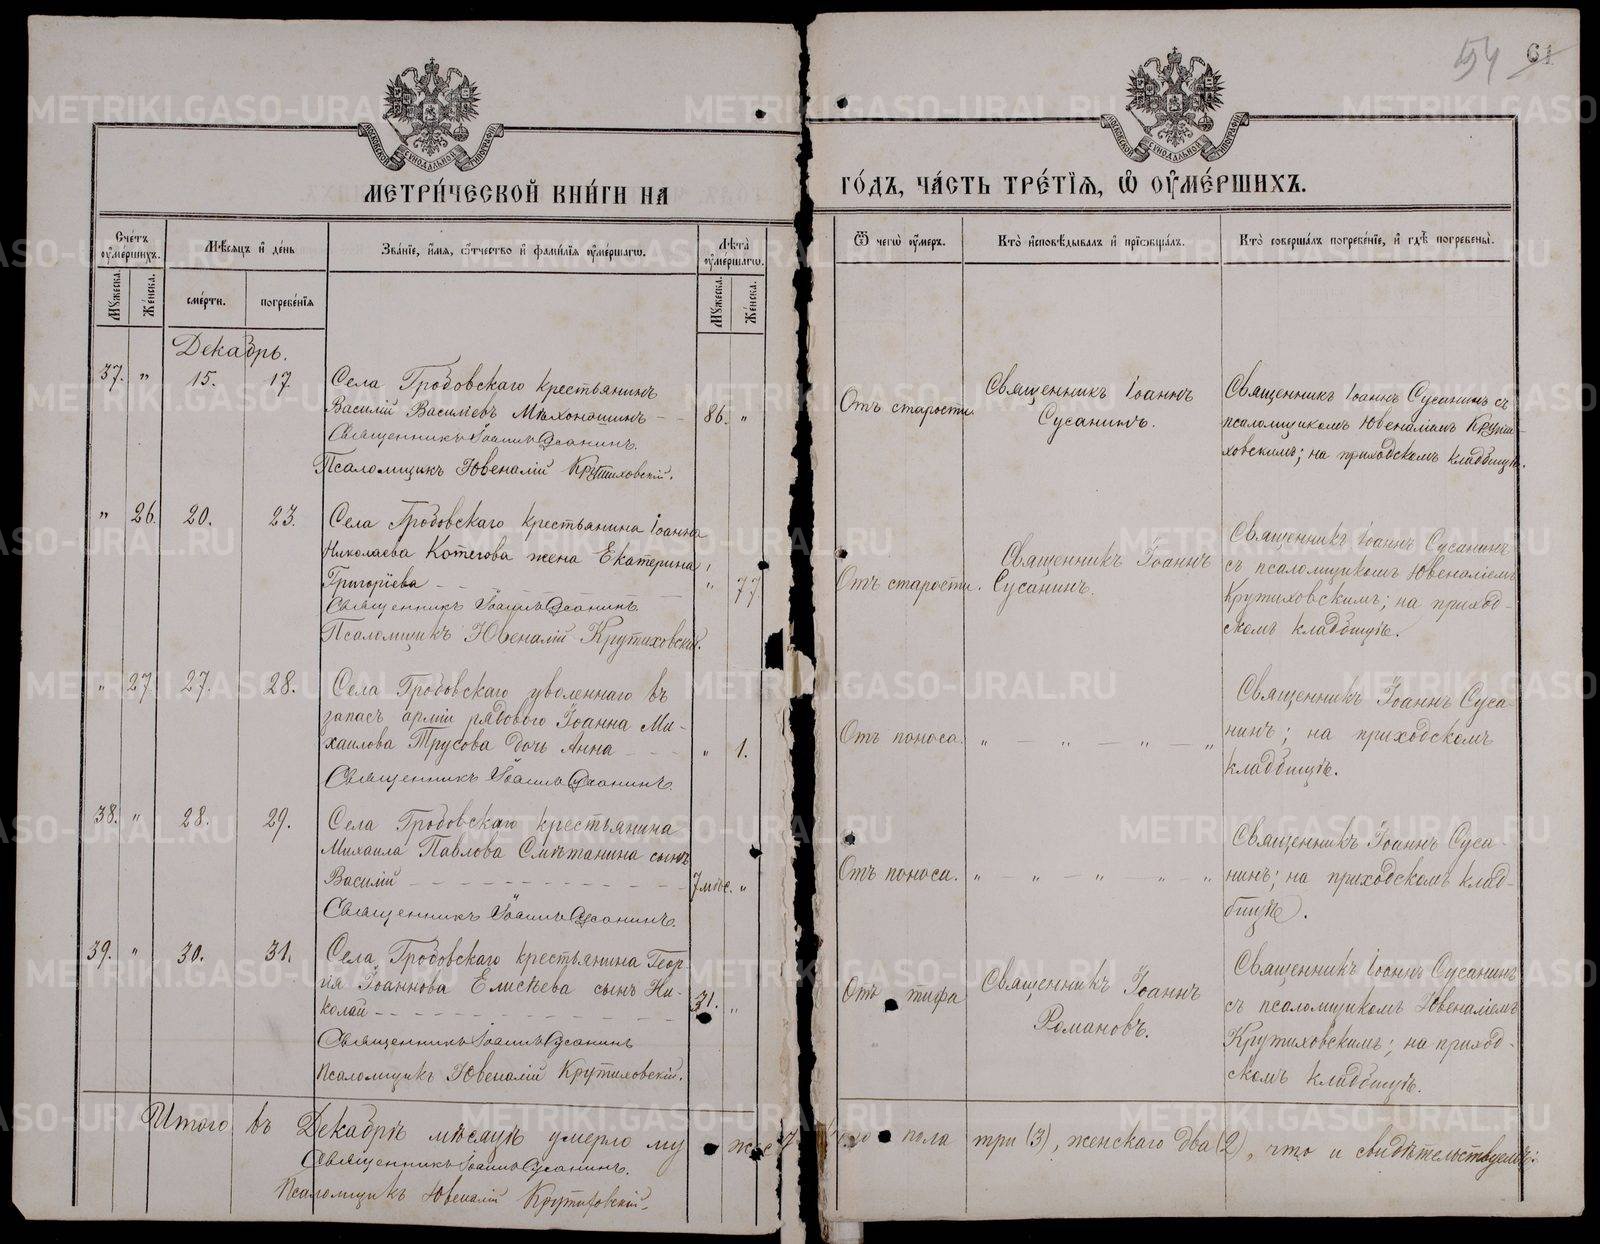 54 61
МЕТРИ́ЧЕСКОЙ КНИ́ГИ НА ГО́ДЪ, ЧА́СТЬ ТРЕ́ТЇѦ, Ѡ҆ ОУ҆МЕ́РШИХЪ.
Сче́тъ оу҆ме́ршихъ.
Мѣ́сяцъ и҆ де́нь
Зва́нїе, и҆́мя, ѻ҆́тчество и҆ фами́лїя оу҆ме́ршагѡ.
Лѣ́та оу҆ме́ршагѡ.
Ѿ чегѡ̀ оу҆́меръ.
Кто̀ и҆сповѣ́дывалъ и҆ прїѡбща́лъ.
Кто̀ соверша́лъ погребе́нїе, и҆ гдѣ̀ погребены̀.
Мꙋ́жеска.
Же́нска.
сме́рти.
погребе́нїя
Мꙋ́жеска.
Же́нска.
Декабрь.
37. " 15. 17. Села Гробовскаго крестьянинъ
Василій Васильевъ Мѣхоношинъ — 86. "
Священникъ Іоаннъ Сусанинъ.
Псаломщикъ Ювеналій Крутиховскій.
Отъ старости.
Священникъ Іоаннъ
Сусанинъ.
Священникъ Іоаннъ Сусанинъ съ
псаломщикомъ Ювеналіемъ Крути-
ховскимъ; на приходскомъ кладбищѣ.
" 26. 20. 23. Села Гробовскаго крестьянина Іоанна
Николаева Котегова жена Екатерина
Григоріева — — " 77.
Священникъ Іоаннъ Сусанинъ
Псаломщикъ Ювеналій Крутиховскій.
Отъ старости.
Священникъ Іоаннъ
Сусанинъ.
Священникъ Іоаннъ Сусанинъ
съ псаломщикомъ Ювеналіемъ
Крутиховскимъ; на приход-
скомъ кладбищѣ.
" 27 27. 28. Села Гробовскаго уволеннаго въ
запасъ арміи рядового Іоанна Ми-
хаилова Трусова дочь Анна — — " 1.
Священникъ Іоаннъ Сусанинъ.
Отъ поноса. " — " — " — "
Священникъ Іоаннъ Суса-
нинъ; на приходскомъ
кладбищѣ.
38. " 28. 29. Села Гробовскаго крестьянина
Михаила Павлова Смѣтанина сынъ
Василій — — — 7 мѣс. "
Священникъ Іоаннъ Сусанинъ.
Отъ поноса. " — " — " — " — "
Священникъ Іоаннъ Суса-
нинъ; на приходскомъ клад-
бищѣ.
39. " 30. 31. Села Гробовскаго крестьянина Геор-
гія Іоаннова Елисѣева сынъ Ни-
колай — — — 31. "
Священникъ Іоаннъ Сусанинъ
Псаломщикъ Ювеналій Крутиховскій.
Отъ тифа
Священникъ Іоаннъ
Романовъ.
Священникъ Іоаннъ Сусанинъ
съ псаломщикомъ Ювеналіемъ
Крутиховскимъ; на приход-
скомъ кладбищѣ.
Итого въ Декабрѣ мѣсяцѣ умерло му пола три (3), женскаго два (2), что и свидѣтельствуемъ:
Священникъ Іоаннъ Сусанинъ.
Псаломщикъ Ювеналій Крутиховскій.
METRIKI.GASO-URAL.RU